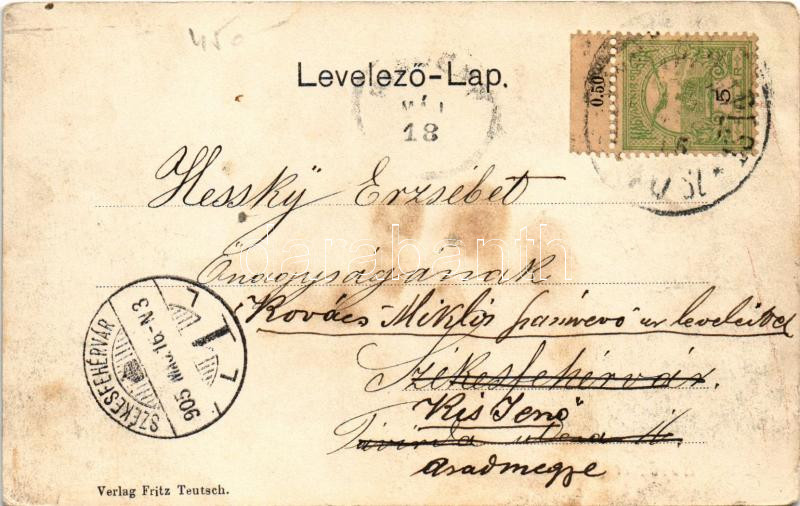 450
Levelező-Lap.
0.50
5
MÁJ
18
Hessky Erzsébet
Önagyságának
(Kovács Miklós számvevő ur leveleivel
Székesfehérvár.
Kis Jenő
utcza
Aradmegye
SZÉKESFEHÉRVÁR
905 MÁJ. 16. N3
Verlag Fritz Teutsch.
darabanth